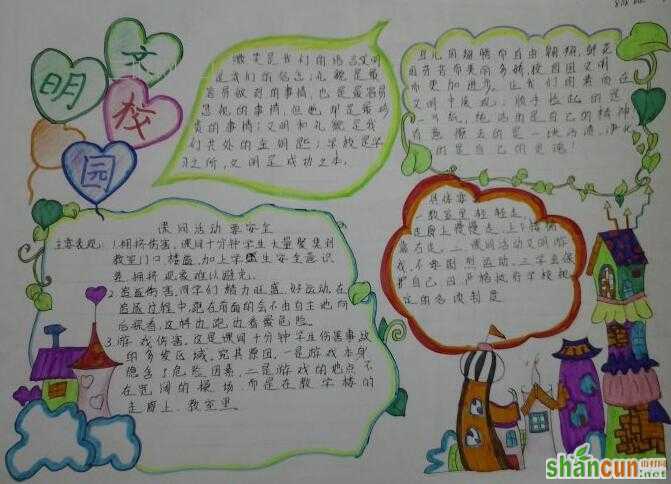 文明校园
微笑是我们的语言文明
是我们的信念;礼貌是最
容易做到的事情,也是最容易
忽视的事情,但她却是最珍
贵的事情;文明和礼貌是我
们共处的金钥匙;学校是学
习之所,文明是成功之本。
鸟儿因翅膀而自由翱翔,鲜花
因芬芳而美丽多娇,校园因文明
而更加进步。让我们因素而在
文明中发现:顺手捡起的是
纸,纯洁的是自己的精神
有意擦去的是一块污渍,净化
的是自己的灵魂!
课间活动要安全
主要表现:1.拥挤伤害,课间十分钟学生大量聚集到
教室门口、楼道,加上学生安全意识
差,拥挤现象难以避免。
2.追逐伤害,同学们精力旺盛,好运动,在
追逐过程中,跑在前面的会不由自主地向
后观看,这样边跑边看最危险。
3.游戏伤害,这是课间十分钟学生伤害事故
的多发区域,究其原因,一是游戏本身
隐含了危险因素,二是游戏的地点不
在宽阔的操场,而是在教学楼的
走廊上、教室里
具体要
一、教室里轻轻走,
走廊上慢慢走,上下楼梯
靠右走。二、课间活动文明游
戏,不要剧烈运动。三、学会保
护自己,四、严格执行学校规
定的各项制度
shancun